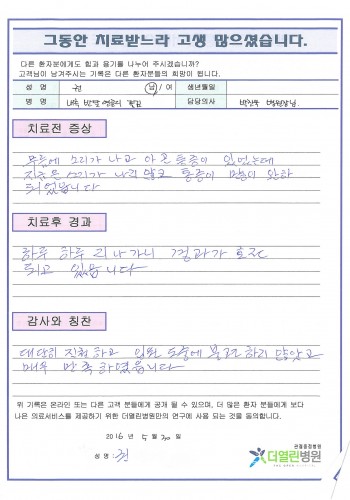 그동안 치료받느라 고생 많으셨습니다.
다른 환자분에게도 힘과 용기를 나누어 주시겠습니까?
고객님이 남겨주시는 기록은 다른 환자분들의 희망이 됩니다.
성 명 권 남 / 여 생년월일
병 명 내측 반월 연골의 담당의사 박진욱 병원장님
치료전 증상
무릎에 소리가 나고 아픈 통증이 있었는데
지금은 소리가 나지 않고 통증이 많이 완화
되었습니다
치료후 경과
하루 하루 지나가니 경과가 호전
되고 있습니다
감사와 칭찬
대단히 친절하고 입원 도중에 불편하지 않았고
매우 만족하였습니다
위 기록은 온라인 또는 다른 고객 분들에게 공개 될 수 있으며, 더 많은 환자 분들에게 보다
나은 의료서비스를 제공하기 위한 더열린병원만의 연구에 사용 되는 것을 동의합니다.
2016 년 5 월 30 일
성 명 : 권
관절중점병원
더열린병원